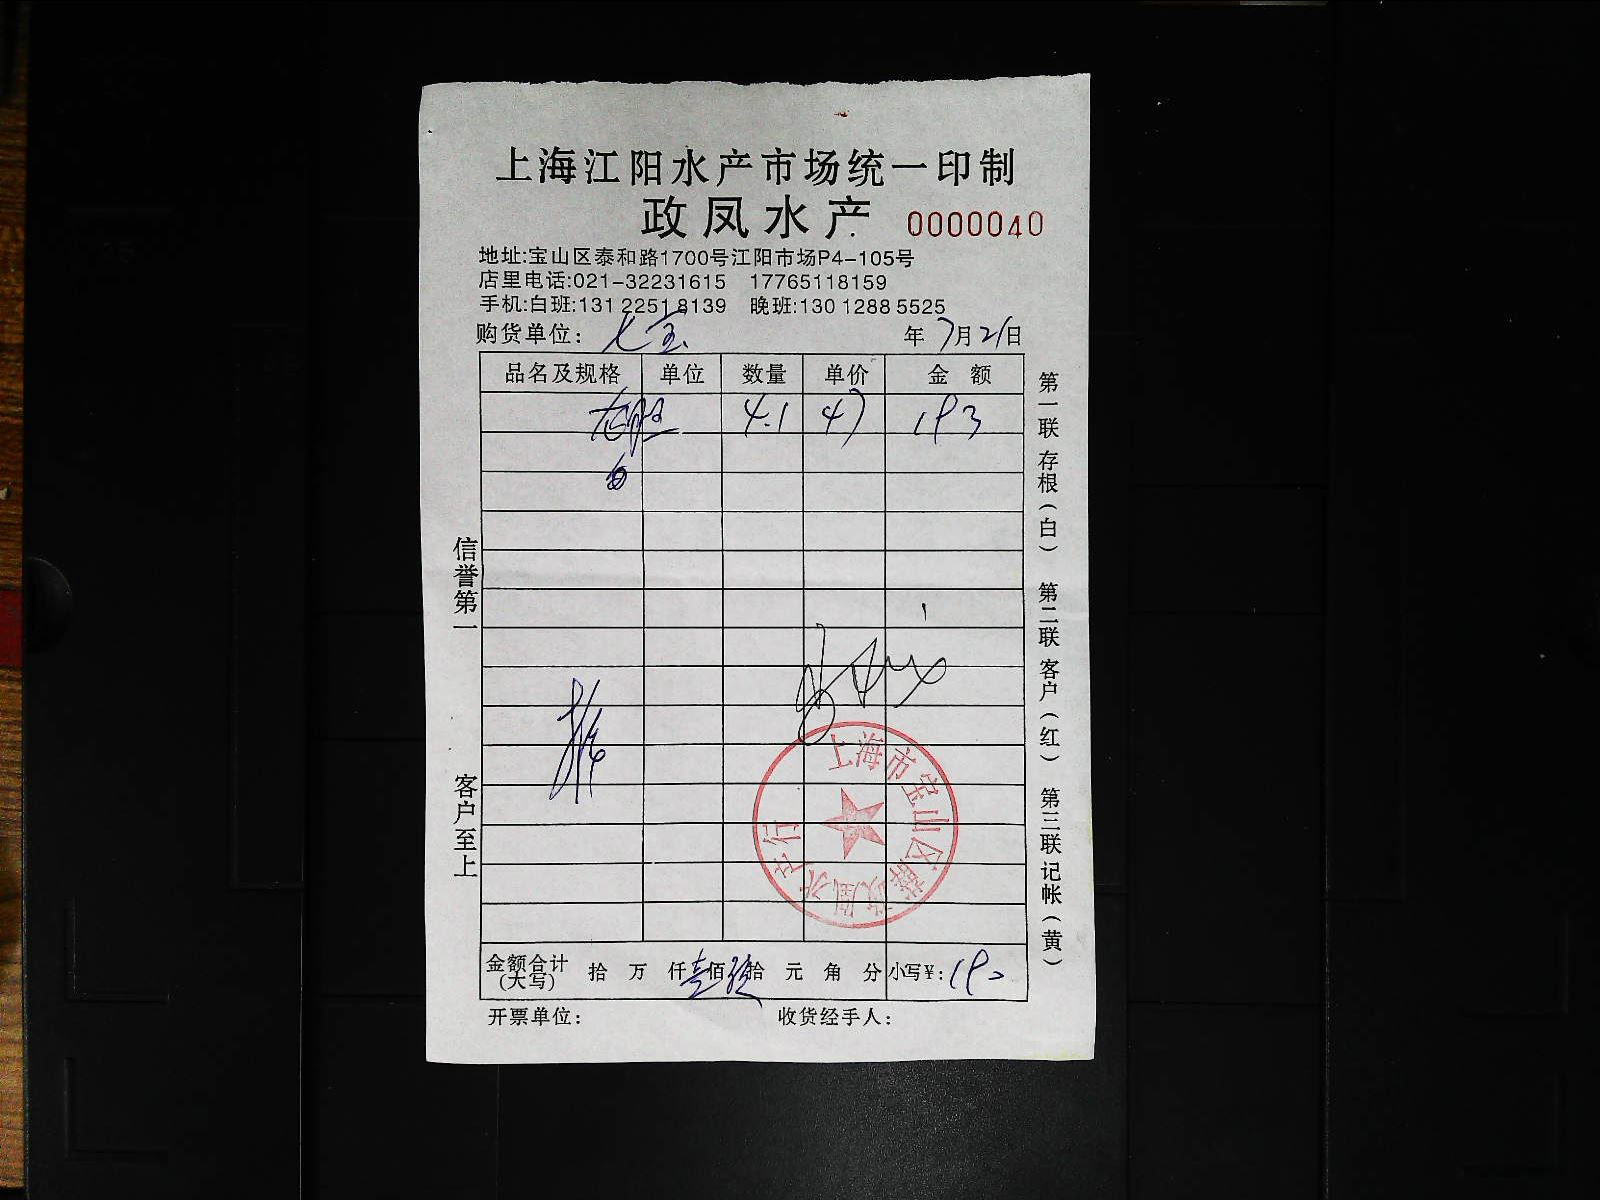 上海江阳水产市场统一印制
政凤水产 0000040
地址:宝山区泰和路1700号江阳市场P4-105号
店里电话:021-32231615 17765118159
手机:白班:131 2251 8139 晚班:130 1288 5525
购货单位: 七宝 年 7月21日
品名及规格 单位 数量 单价 金 额
4.1 47 193
第一联 存根(白) 第二联 客户(红) 第三联 记帐(黄)
信誉第一
客户至上
上海市宝山区薛政凰水产行
金额合计(大写) 拾 万 仟壹佰玖拾 元 角 分 小写¥: 190
开票单位: 收货经手人: